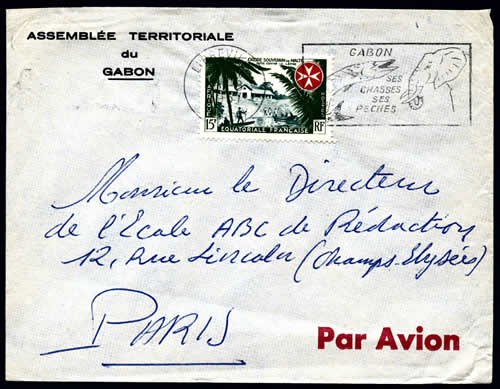 ASSEMBLÉE TERRITORIALE
du
GABON
LIBREVILLE
ORDRE SOUVERAIN DE MALTE
AFRIQUE
15F
RF
ÉQUATORIALE FRANÇAISE
GABON
SES
CHASSES
SES
PECHES
Monsieur le Directeur
de l'Ecole ABC de Rédaction
12, Rue Lincoln (Champs-Elysées)
PARIS
Par Avion